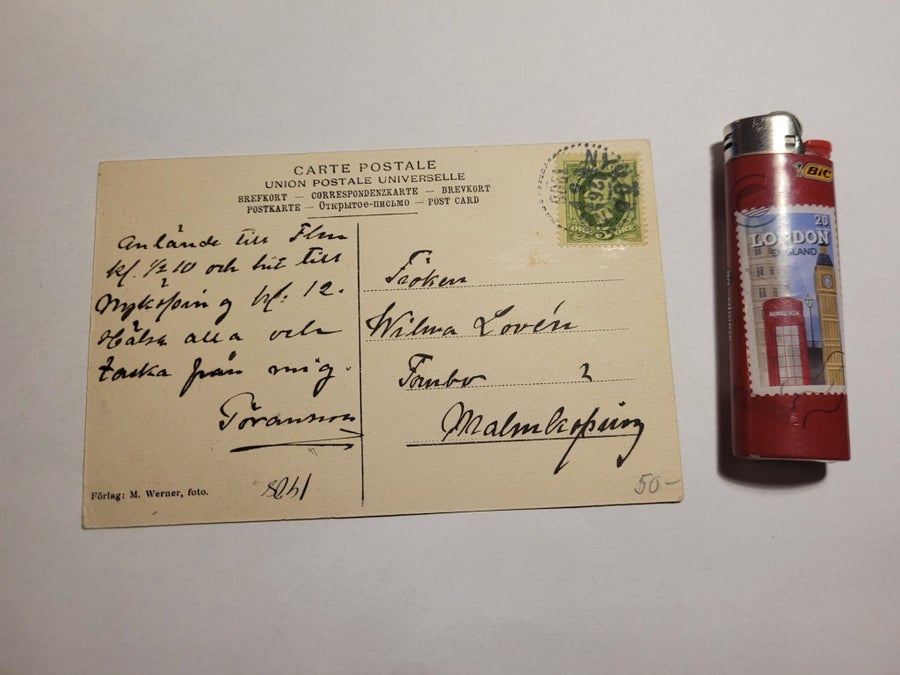 CARTE POSTALE
UNION POSTALE UNIVERSELLE
BREFKORT — CORRESPONDENZKARTE — BREVKORT
POSTKARTE — Открытое-письмо — POST CARD
Anlände till Flen
kl. ½ 10 och hit till
Nyköping kl. 12.
Hälsa alla och
tacka från mig.
Göransson
Fröken
Wilma Lovén
Malmköping
Förlag: M. Werner, foto.
50-
5
ÖRE
BIC
20
LONDON
ENGLAND